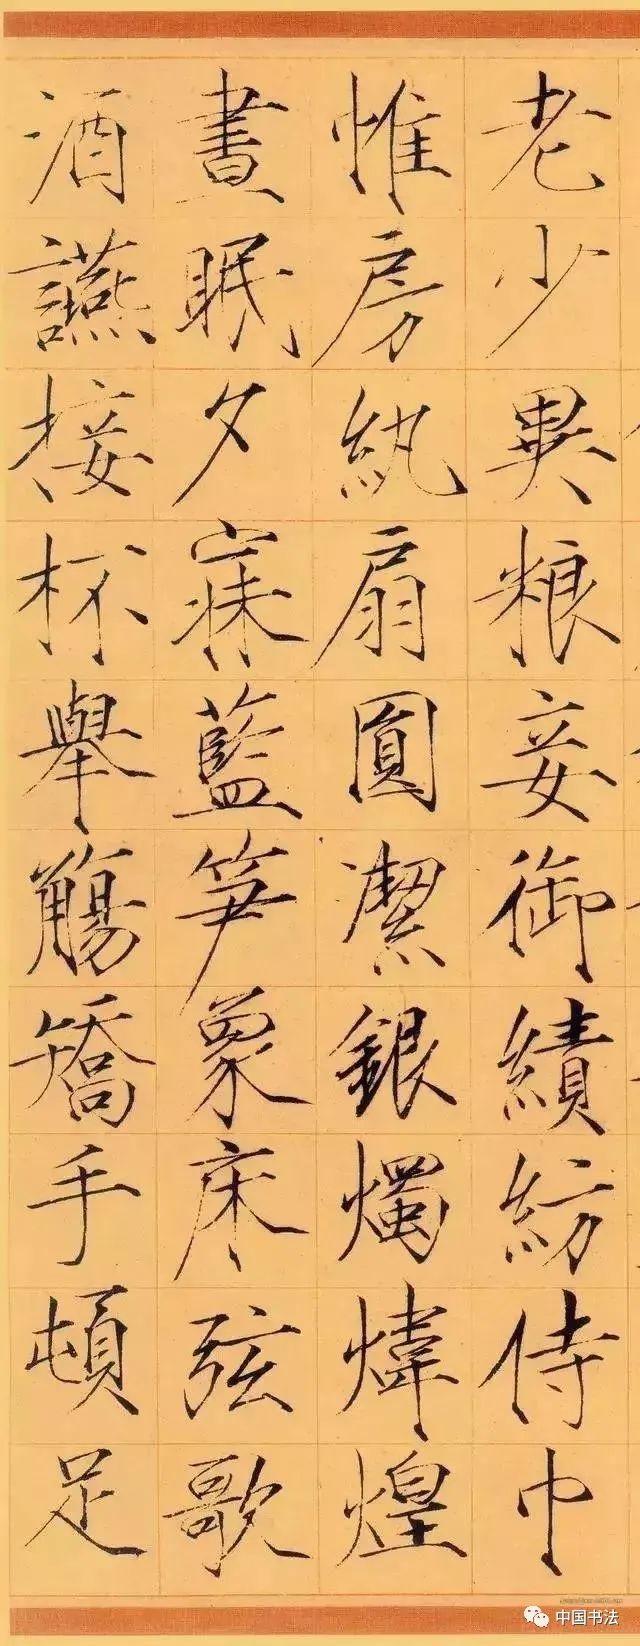 老少異粮妾御績紡侍巾
惟房紈扇圓潔銀燭煒煌
晝眠夕寐藍笋象床弦歌
酒讌接杯舉觴矯手頓足
中国书法